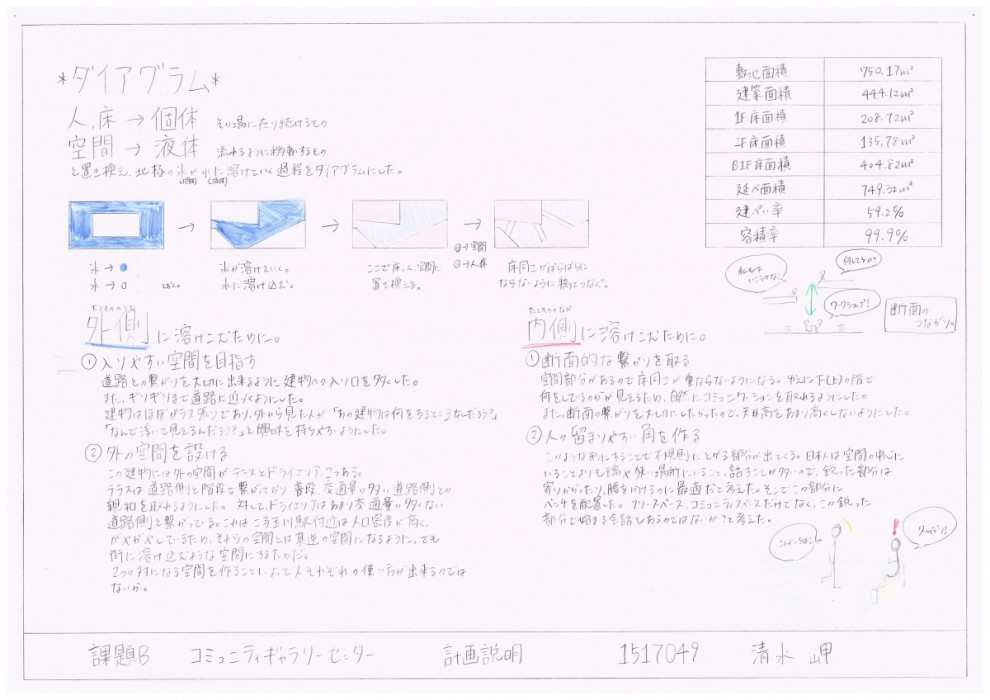 *ダイアグラム*
人、床 → 個体 その場に在り続けるもの
空間 → 液体 流れるように移動するもの
と置き換え、北極の氷が水に溶けていく過程をダイアグラムにした。
(個体) (液体)
敷地面積 750.17㎡
建築面積 444.12㎡
1F床面積 208.72㎡
2F床面積 135.78㎡
B1F床面積 404.82㎡
延べ面積 749.32㎡
建ぺい率 59.2%
容積率 99.9%
→空間
→人、床
氷→
水→
氷が溶けていく。
水に溶け込む。
ここで床、人、空間に
置き換える。
床同士がばらばらに
ならないように橋でつなぐ。
私も下
いこうかな。
何してるの?
ワークショップ!
断面の
つながり。
たてもののそと
外側に溶けこむために。
①入りやすい空間を目指す
道路との繋がりを大切に出来るように建物への入り口を多くした。
また、ギリギリまで道路に近づくようにした。
建物はほぼガラス張りであり、外から見た人が「あの建物は何をするところなんだろう?」
「なんで浮いて見えるんだろう?」と興味を持ちやすいようにした。
②外の空間を設ける
この建物には外の空間がテラスとドライエリア、2つある。
テラスは道路側と階段で繋がっており普段、交通量の多い道路側との
親和を取れるようにした。対して、ドライエリアはあまり交通量の多くない
道路側と繋がっている。これは二子玉川駅付近は人口密度が高く、
がやがやしているため、それらの空間とは真逆の空間になるように、でも
街に溶け込むような空間にするためだ。
2つの対になる空間を作ることによって人それぞれの使い方が出来るのでは
ないか。
たてもののなか
内側に溶けこむために。
①断面的な繋がりを取る
空間部分があるので床同士が重ならないようになる。さらに下(上)の階で
何をしているのかが見えるため、自然にコミュニケーションを取れるようにした。
また、断面の繋がりを大切にしたかったので、天井高をあまり高くしないようにした。
②人の留まりやすい角を作る
このような形にすることで不規則にとがる部分が出てくる。日本人は空間の中心に
いることよりも隅や狭い場所にいること、話すことが多いので、鋭った部分は
寄りかかったり、腰をかけるに最適だと考えた。そこでこの部分に
ベンチを配置した。フリースペース、コミュニティスペースだけでなく、この鋭った
部分で始まる会話もあるのではないかと考えた。
こんにちはー
課題B コミュニティギャラリーセンター 計画説明 1517049 清水 岬